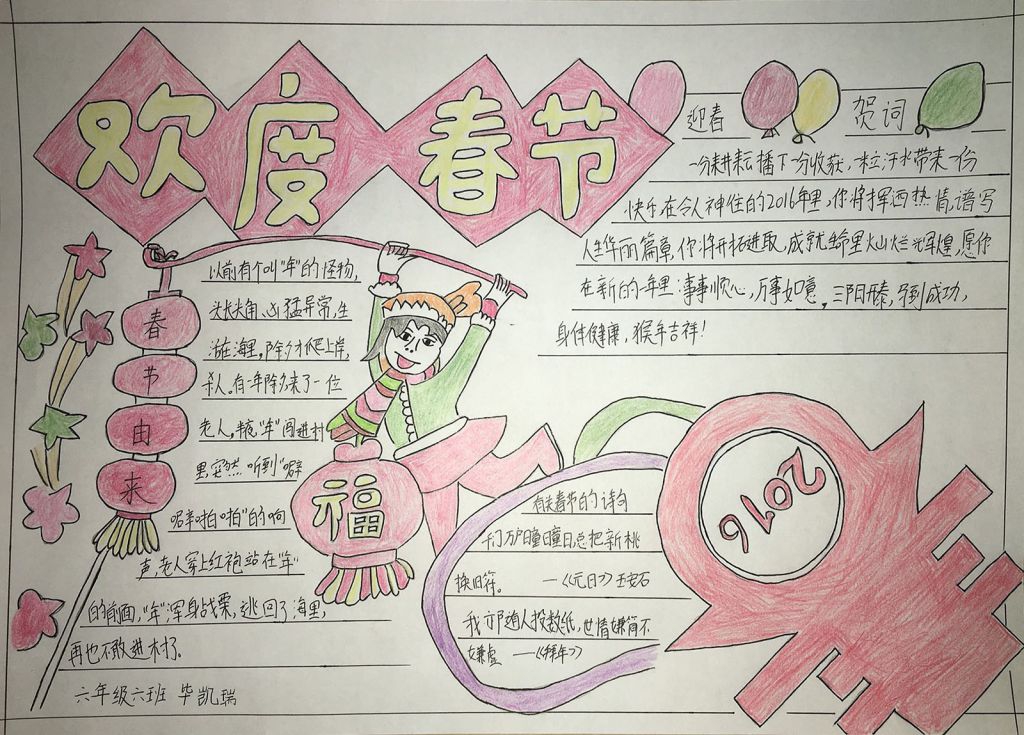 欢度春节
迎春 贺词
一分耕耘播下一分收获,一粒汗水带来一份
快乐,在令人神往的2016年里,你将挥洒热情,谱写
人生华丽篇章,你将开拓进取,成就生命里火山灿烂辉煌,愿你
在新的一年里:事事顺心,万事如意,三阳开泰,马到成功,
身体健康,猴年吉祥!
春节由来
以前有个叫“年”的怪物,
头长尖角,凶猛异常,生
活在海里,除夕才爬上岸,
杀人。有一年除夕来了一位
老人,半夜“年”闯进村
里,突然听到“噼
啪啪啪”的响
声,老人穿上红袍站在“年”
的前面,“年”浑身战栗,逃回了海里,
再也不敢进村了.
福
有关春节的诗句
千门万户曈曈日总把新桃
换旧符。 —《元日》王安石
我亦随人投数纸,世情嫌简不
嫌虚 —《拜年》
2016
六年级六班 毕凯瑞